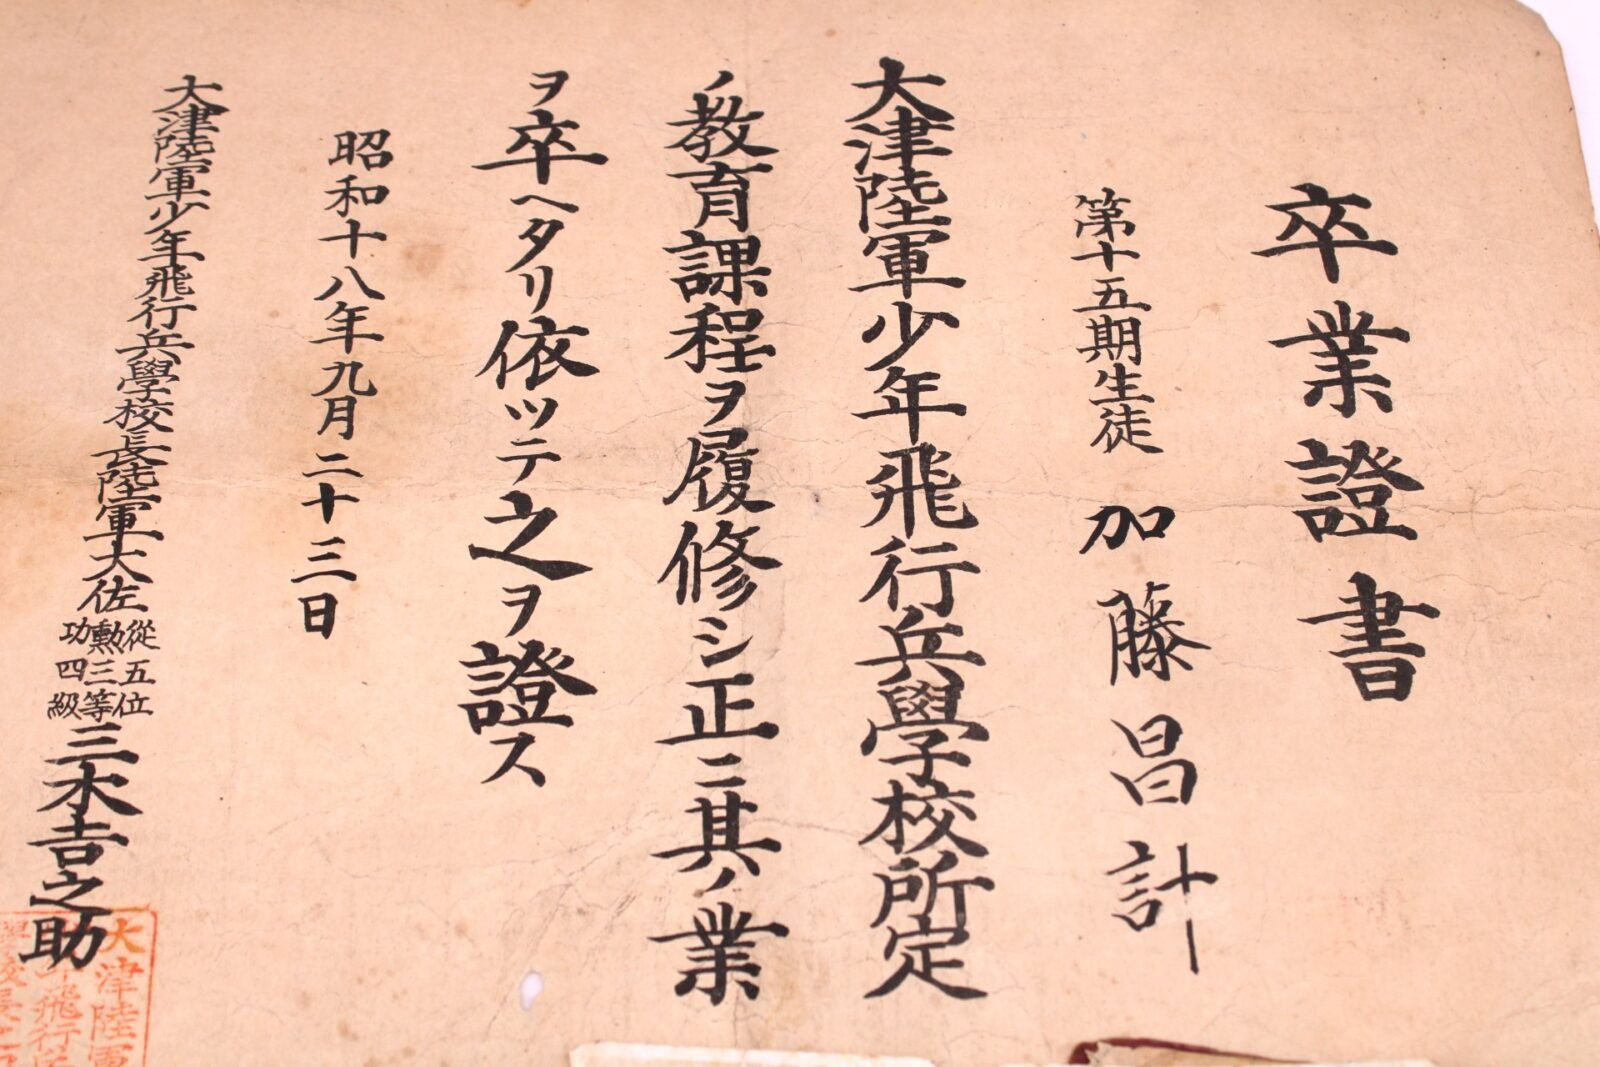 卒業證書
第十五期生徒 加藤昌計
大津陸軍少年飛行兵學校所定
ノ教育課程ヲ履修シ正ニ其ノ業
ヲ卒ヘタリ依ツテ之ヲ證ス
昭和十八年九月二十三日
大津陸軍少年飛行兵學校長陸軍大佐
從五位
勲三等
功四級
三木吉之助
大津陸軍
年飛行
校長